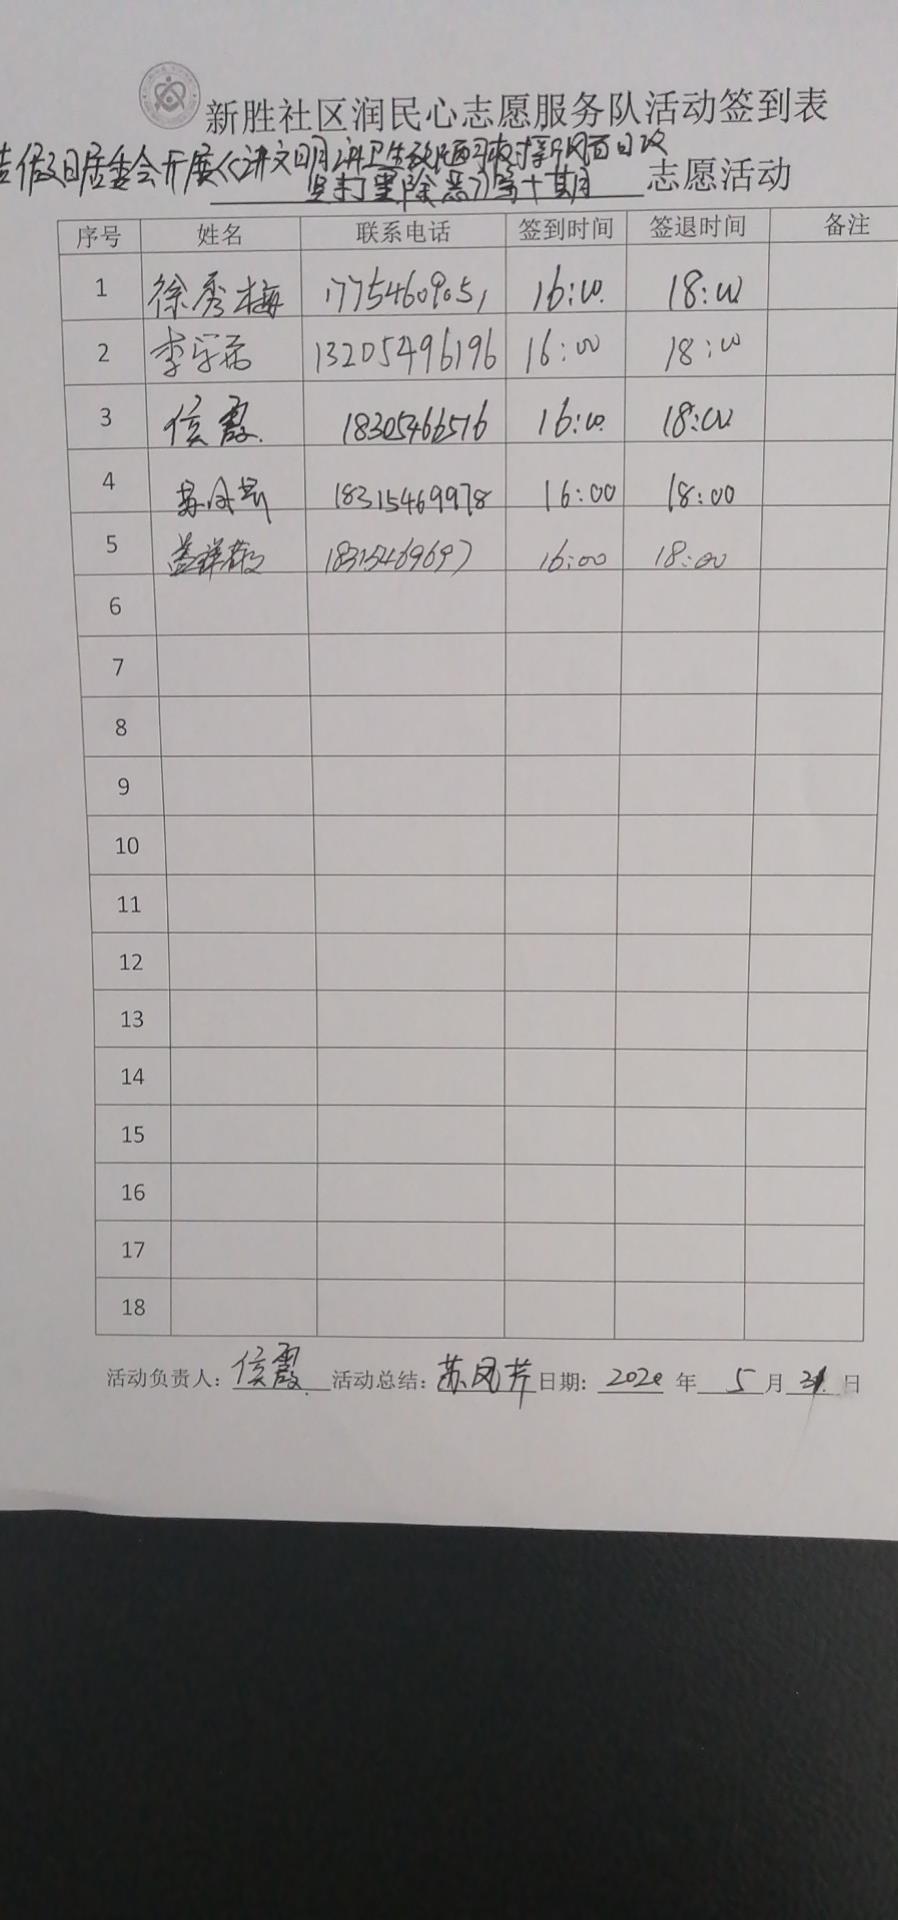 新胜社区润民心志愿服务队活动签到表
假日居委会开展《讲文明讲卫生改陋习树
除恶》第十期 志愿活动
序号 姓名 联系电话 签到时间 签退时间 备注
1 徐秀梅 17754609051 16:00 18:00
2 李 13205496196 16:00 18:00
3 侯霞 18305466516 16:00 18:00
4 苏凤芹 18315469978 16:00 18:00
5 盖祥 18315469697 16:00 18:00
6
7
8
9
10
11
12
13
14
15
16
17
18
活动负责人：侯霞 活动总结：苏凤芹 日期：2020 年 5 月 31 日